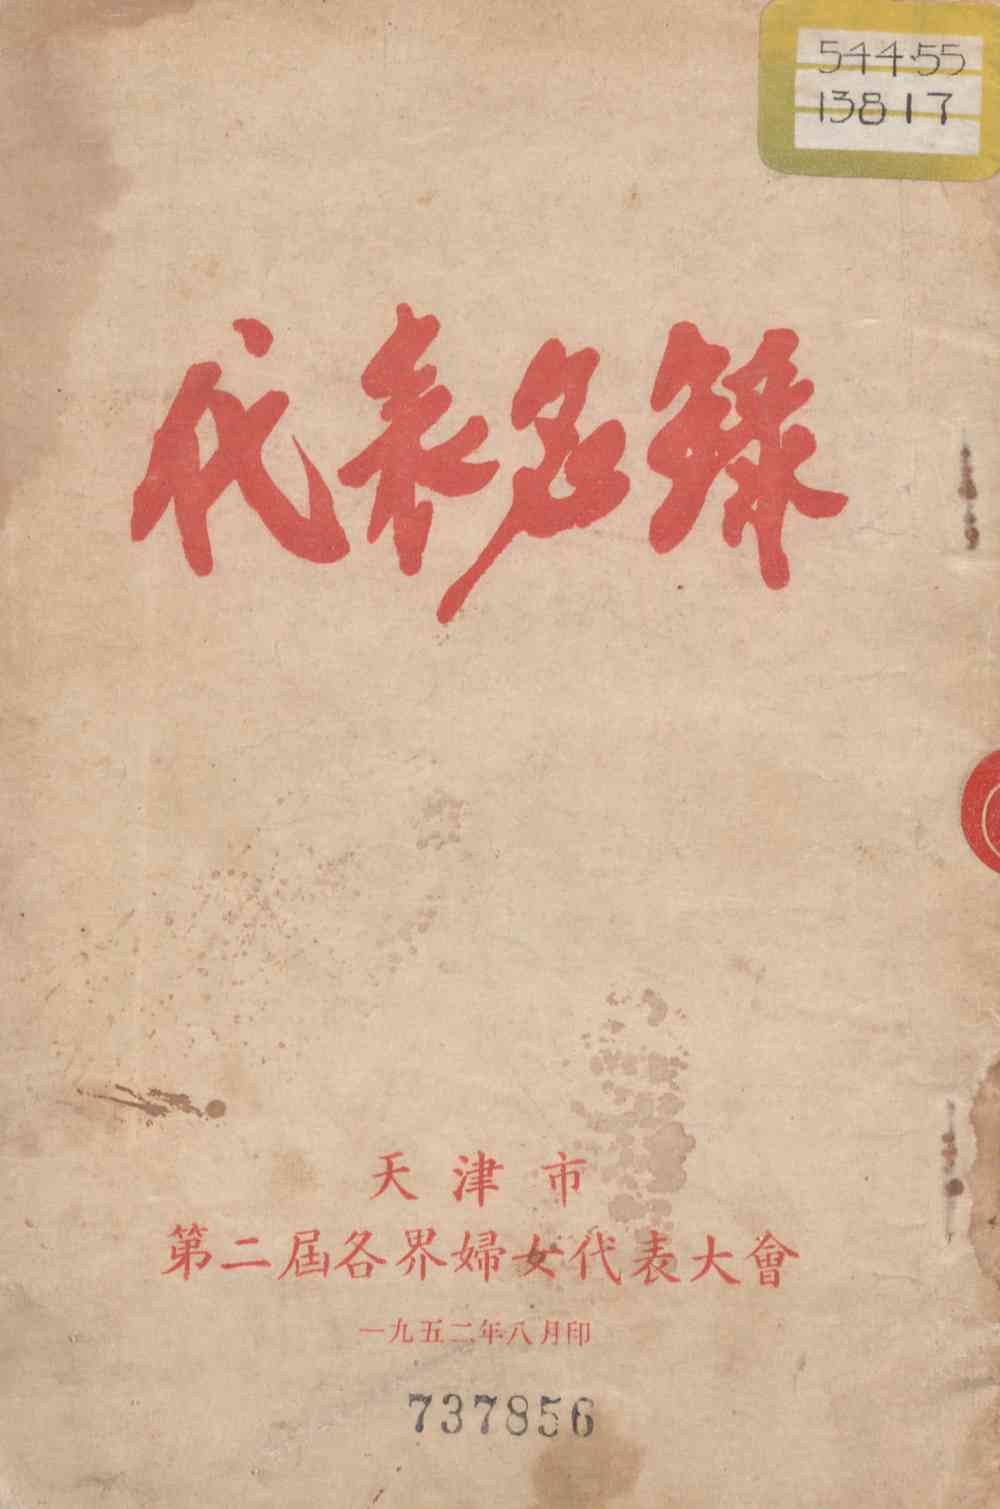 544.55
13817
代表名錄
天津市
第二屆各界婦女代表大會
一九五二年八月印
737856